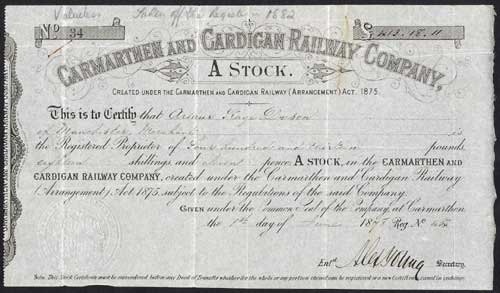 Valueless Taken off the Register in 1882
No 34 £413.18.11
CARMARTHEN AND CARDIGAN RAILWAY COMPANY,
A STOCK.
CREATED UNDER THE CARMARTHEN AND CARDIGAN RAILWAY (ARRANGEMENT) ACT, 1875.
This is to Certify that Kaye Dobson
of Manchester Merchant is
the Registered Proprietor of Four hundred and thirteen pounds
eighteen shillings and eleven pence A STOCK, in the CARMARTHEN AND
CARDIGAN RAILWAY COMPANY, created under the Carmarthen and Cardigan Railway
(Arrangement) Act 1875, subject to the Regulations of the said Company.
GIVEN under the Common Seal of the Company, at Carmarthen
the day of June 187 Reg. No
Entd. Secretary.
Note. This Stock Certificate must be surrendered before any Deed of Transfer whether for the whole or any portion thereof can be registered or a new Certificate issued in exchange.